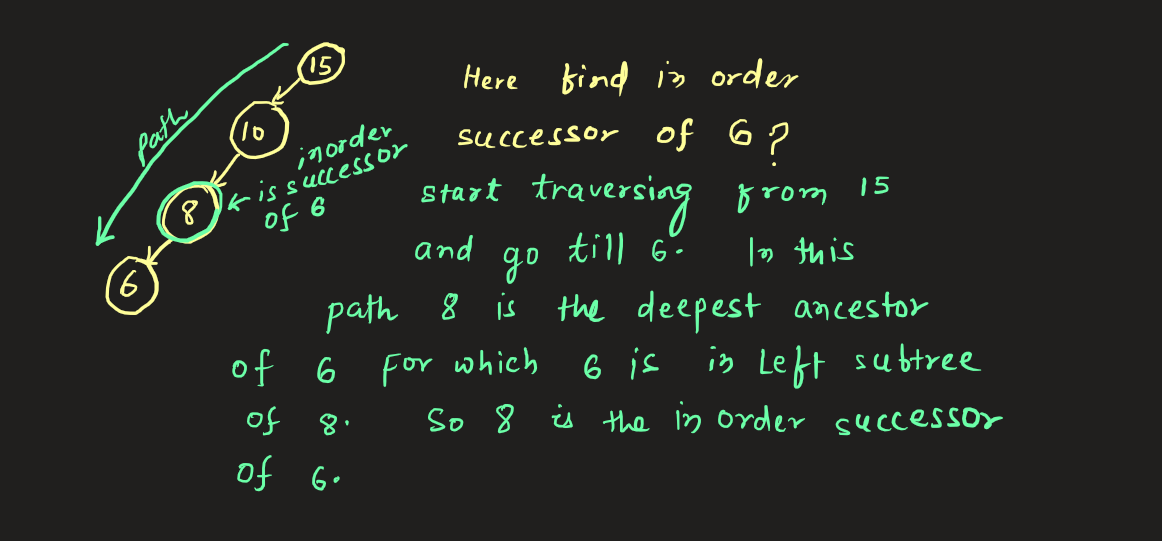 15
Here find in order
10
path
successor of 6?
inorder
is successor
of 6
8
start traversing from 15
and go till 6. In this
6
path 8 is the deepest ancestor
of 6 for which 6 is in Left subtree
of 8. So 8 is the in order successor
of 6.